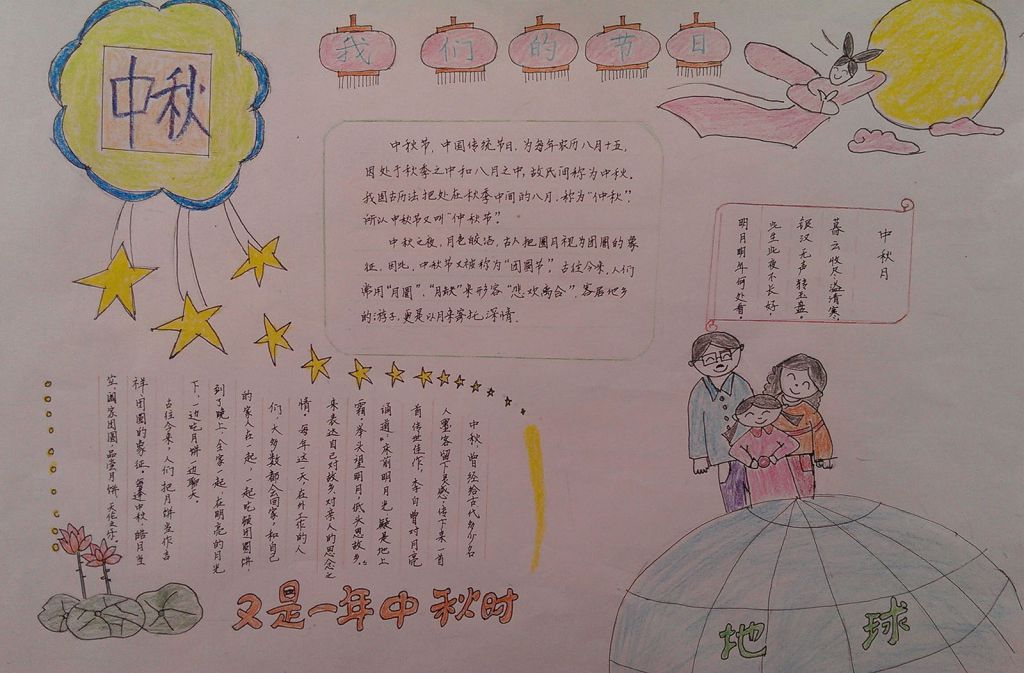 中秋
我们的节日
中秋节,中国传统节日,为每年农历八月十五,
因处于秋季之中和八月之中,故民间称为中秋。
我国古历法把处在秋季中间的八月,称为“仲秋”,
所以中秋节又叫“仲秋节”。
中秋之夜,月色皎洁,古人把圆月视为团圆的象
征,因此,中秋节又被称为“团圆节”。古往今来,人们
常用“月圆”、“月缺”来形容“悲欢离合”,客居他乡
的游子,更是以月来寄托深情。
中秋月
暮云收尽溢清寒,
银汉无声转玉盘。
此生此夜不长好,
明月明年何处看。
中秋,曾经给古代多少名
人墨客留下灵感,传下来一首
首传世佳作,李白曾对月亮
诵道“床前明月光,疑是地上
霜。举头望明月,低头思故乡。”
来表达自己对故乡,对亲人的思念之
情。每年这一天,在外工作的人
们,大多数都会回家,和自己
的家人在一起,一起吃顿团圆饼,
到了晚上,全家一起,在明亮的月光
下,一边吃月饼,一边聊天。
古往今来,人们把月饼当作吉
祥、团圆的象征。每逢中秋,皓月当
空,阖家团圆,品尝月饼,
又是一年中秋时
地球